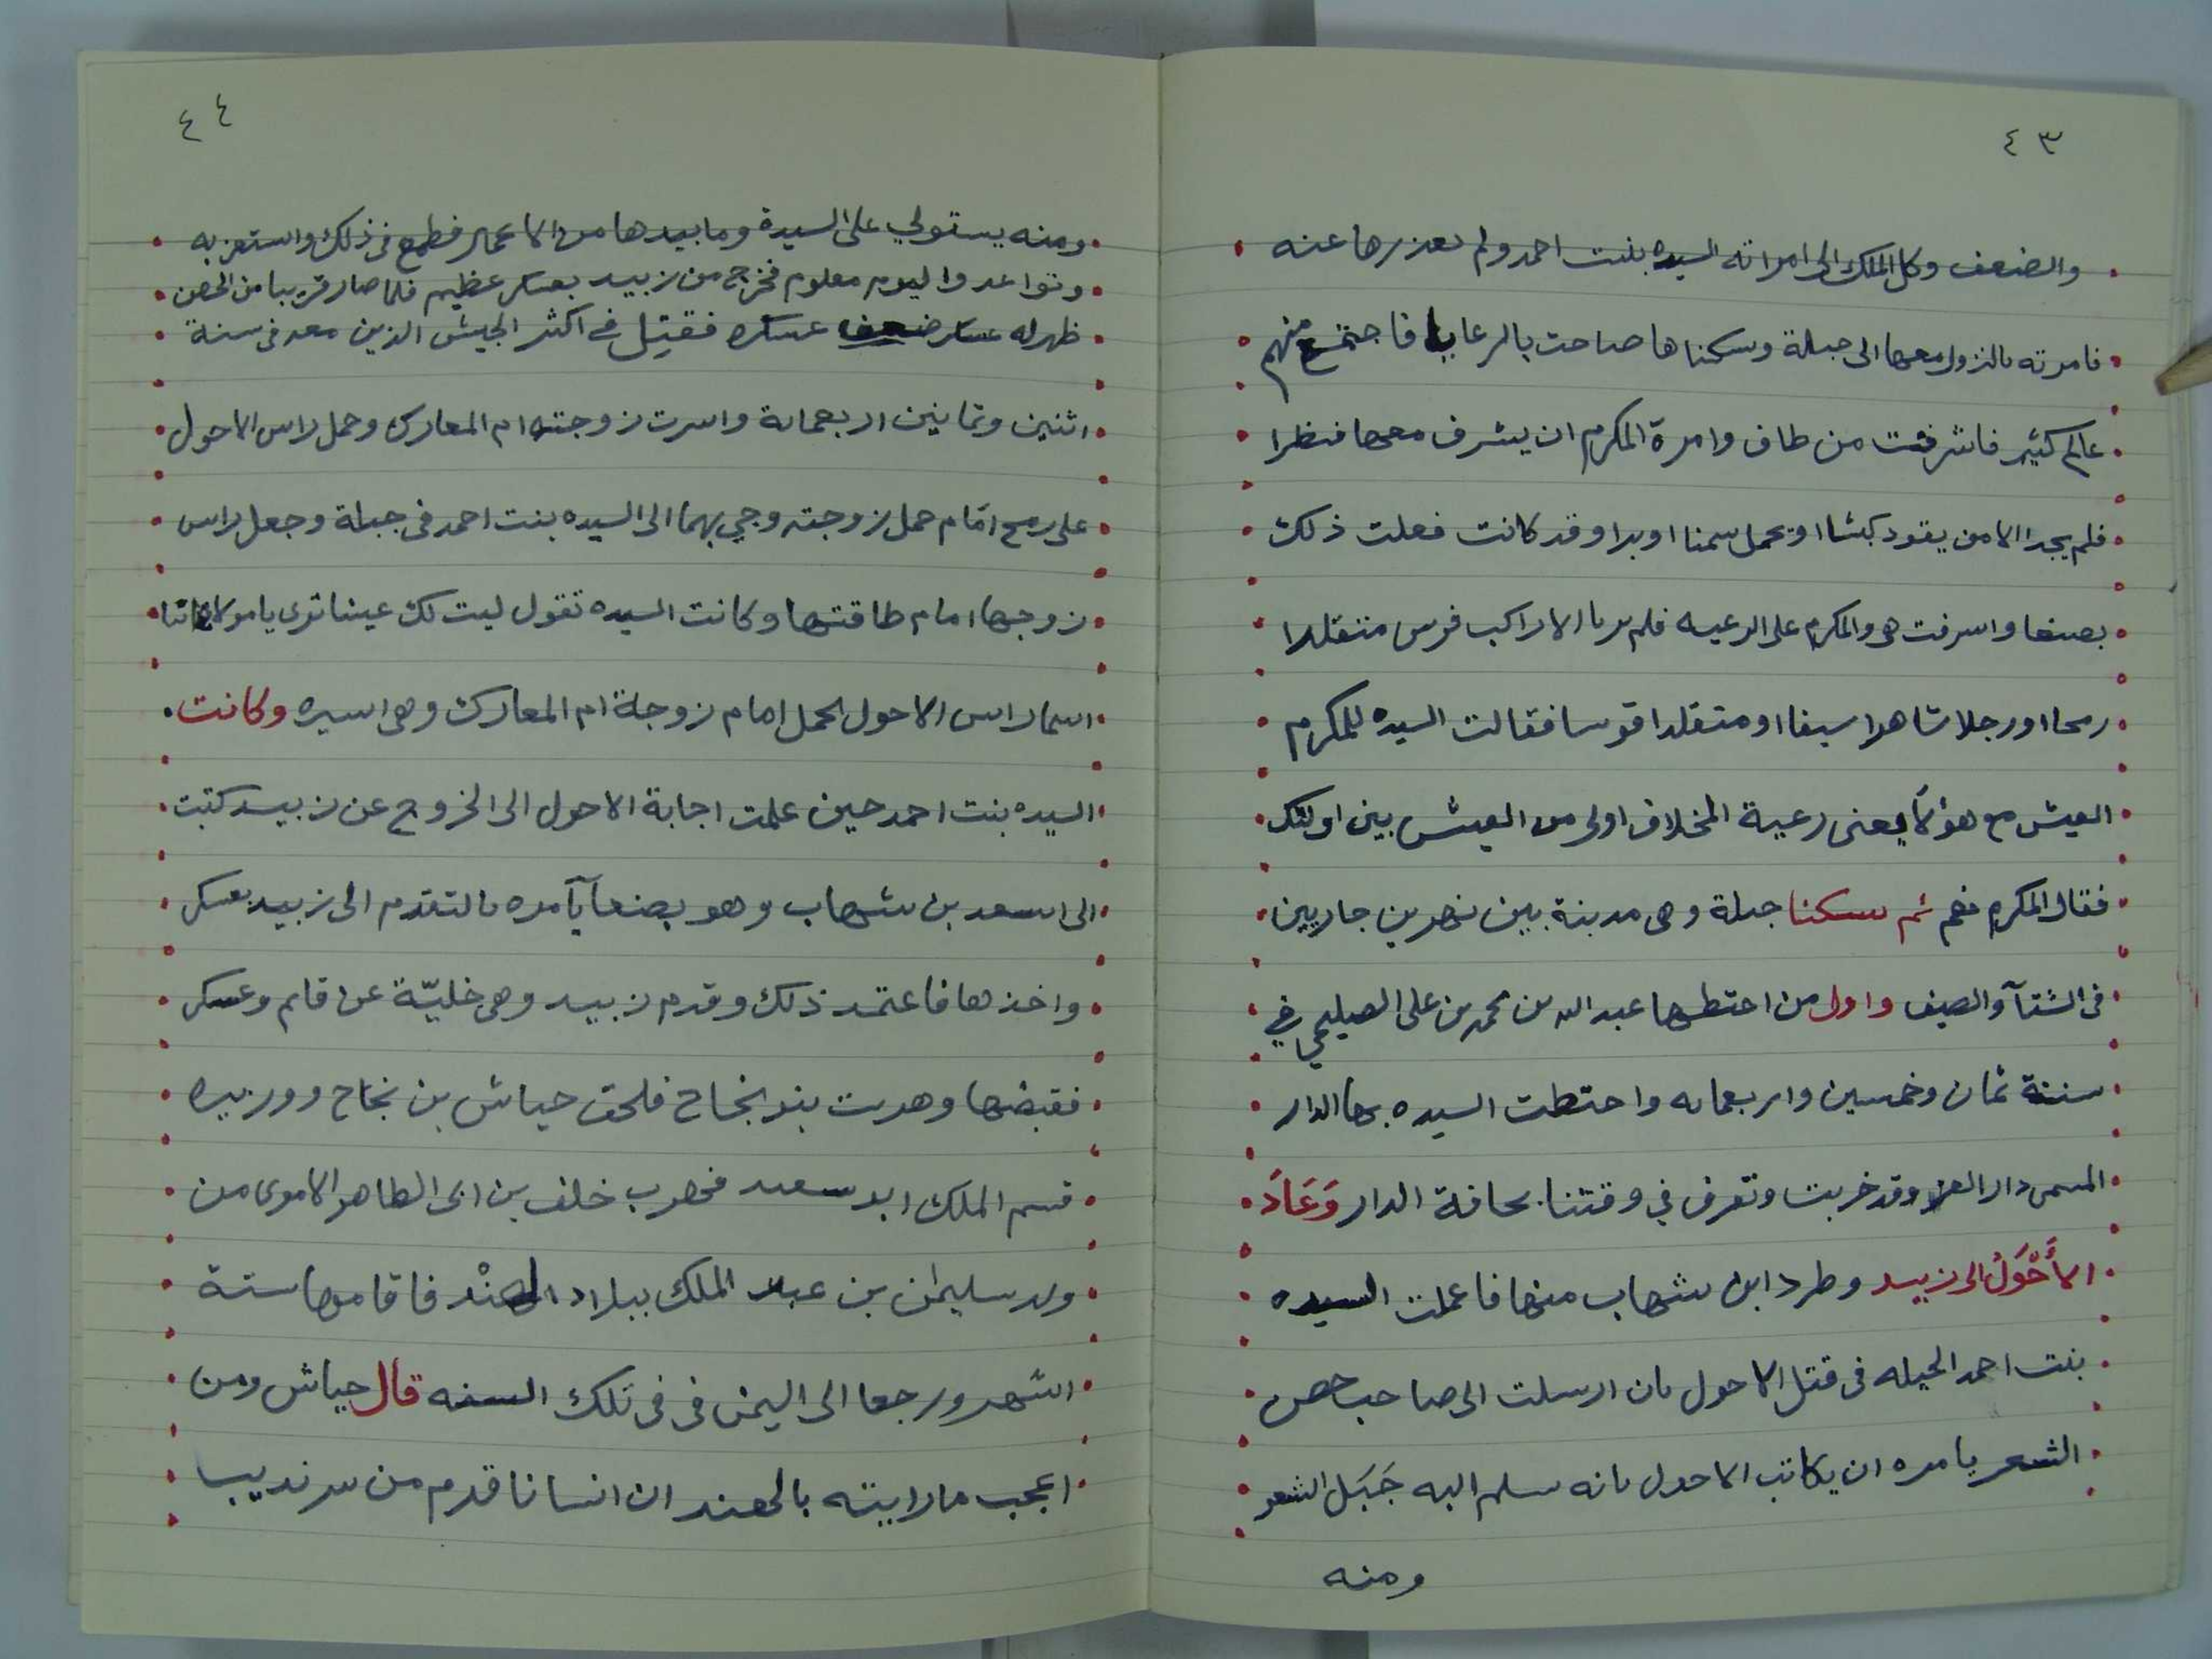 ٤٣
والضعف وكل الملك الى امراته السيده بنت احمد ولم عنه
فامرته بالنزول معها الى جبلة وسكناها صاحت بالرعايا فاجتمع منهم
عالم كثير فاشرفت من طاق وامرة المكرم ان يشرف معها فنظرا
فلم يجدا الا من يقود كبشا او يحمل سمنا او برا وقد كانت فعلت ذلك
بصنعا واسرفت هى والمكرم على الرعيه فلم يريا الا راكب فرس متقلدا
رمحا او رجلا شاهرا سيفا او متقلدا قوسا فقالت السيده للمكرم
العيش مع هؤلآ يعنى رعية المخلاف اولى من العيش بين اولئك
فقال المكرم نعم ثم سكنا جبلة وهى مدينة بين نهرين جاريين
فى الشتآ والصيف واول من احتطها عبد الله بن محمد بن على الصليحي في
سنة ثمان وخمسين واربعمايه واحتطت السيده بها الدار
المسمى دار العز وقد خربت وتعرف في وقتنا بحافة الدار وَعَادَ
الأَحْوَلُ الى زبيد وطرد ابن شهاب منها فاعملت السيده
بنت احمد الحيله فى قتل الاحول بان ارسلت الى صاحب حصن
الشعر يامره ان يكاتب الاحول بانه سلم اليه جَبَل الشعر
ومنه
٤٤
ومنه يستولي على السيدة وما بيدها من الاعمال فطمع فى ذلك واستعز به
وتواعدوا ليوم معلوم فخرج من زبيد بعسكر عظيم فلما صار قريبا من الحصن
ظهر له عسكر ضعف عسكره فقتل في اكثر الجيش الذين معه فى سنة
اثنين وثمانين اربعماية واسرت زوجته ام المعارك وحمل راس الاحول
على رمح امَام حمل زوجته وجي بهما الى السيده بنت احمد فى جبلة وجعل راس
زوجها امام طاقتها وكانت السيده تقول ليت لك عينا ترى يا مولاتنا
اسما راس الاحول الحمل امام زوجلة ام المعارك وهى اسيره وكانت
السيده بنت احمد حين علمت اجابة الاحول الى الخروج عن زبيد كتبت
الى اسعد بن شهاب وهو بصنعآ يآمره بالتقدم الى زبيد بعسكر
واخذها فاعتمد ذلك وقدم زبيد وهى خليّة عن قايم وعسكر
فقبضها وهربت بنو نجاح فلحق جياش بن نجاح ووزيره
قسم الملك ابو سعيد فهرب خلف بن ابى الطاهر الاموى من
ولد سليمان بن عبد الملك ببلاد الهنْد فاقاموها ستة
اشهر ورجعا الى اليمن فى فى تلك السنه قال جياش ومن
اعجب ما رايته بالهند ان انسانا قدم من سرنديب